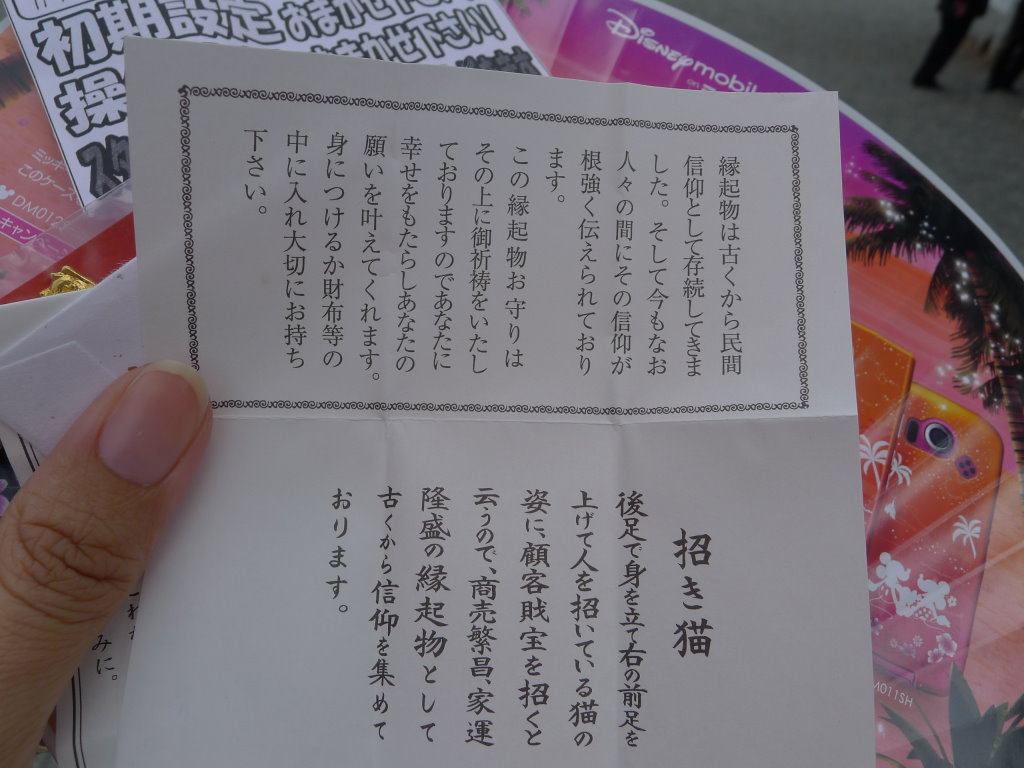 縁起物は古くから民間
信仰として存続してきま
した。そして今もなお
人々の間にその信仰が
根強く伝えられており
ます。
この縁起物お守りは
その上に御祈祷をいたし
ておりますのであなたに
幸せをもたらしあなたの
願いを叶えてくれます。
身につけるか財布等の
中に入れ大切にお持ち
下さい。
招き猫
後足で身を立て右の前足を
上げて人を招いている猫の
姿に、顧客財宝を招くと
云うので、商売繁昌、家運
隆盛の縁起物として
古くから信仰を集めて
おります。
初期設定
おまかせ下さい!
操
Disney mobile
ミッキー
このケース
DM012
キャンペ
M011SH
みに。